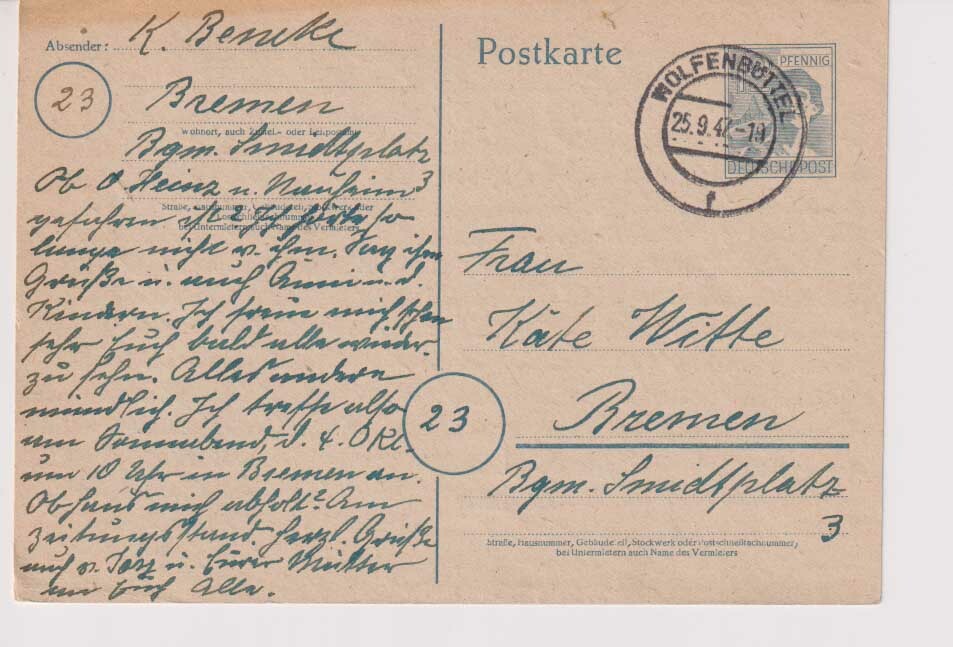 Absender: K. Beneke
23
Bremen
Wohnort, auch Zustell- oder Leitpostamt
Bgm. Smidtplatz
3
Ob O Heinz n. Nauheim
Straße, Hausnummer, Gebäudeteil, Stockwerk oder
Postschließfachnummer,
bei Untermietern auch Name des Vermieters
gefahren ist? Ich hörte so
lange nicht v. ihm. Sag ihm
Grüße u. auch Anni u. d.
Kindern. Ich freue mich schon
sehr Euch bald alle wieder-
zu sehn. Alles andere
mündlich. Ich treffe also
am Sonnabend, d. 4. Okt.
um 10 Uhr in Bremen an.
Ob Hans mich abholt? Am
Zeitungsstand. Herzl. Grüße
auch v. u. Eurer Mutter
an Euch Alle.
Postkarte
PFENNIG
DEUTSCHE POST
WOLFENBÜTTEL
25.9.47.-19
f
Frau
Käte Witte
23
Bremen
Bgm. Smidtplatz
3
Straße, Hausnummer, Gebäudeteil, Stockwerk oder Postschließfachnummer,
bei Untermietern auch Name des Vermieters